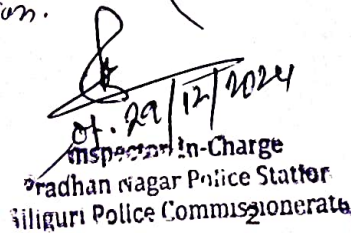 on.
Of. 29/12/2024
Inspector In-Charge
Pradhan Nagar Police Station
Siliguri Police Commissionerate
2